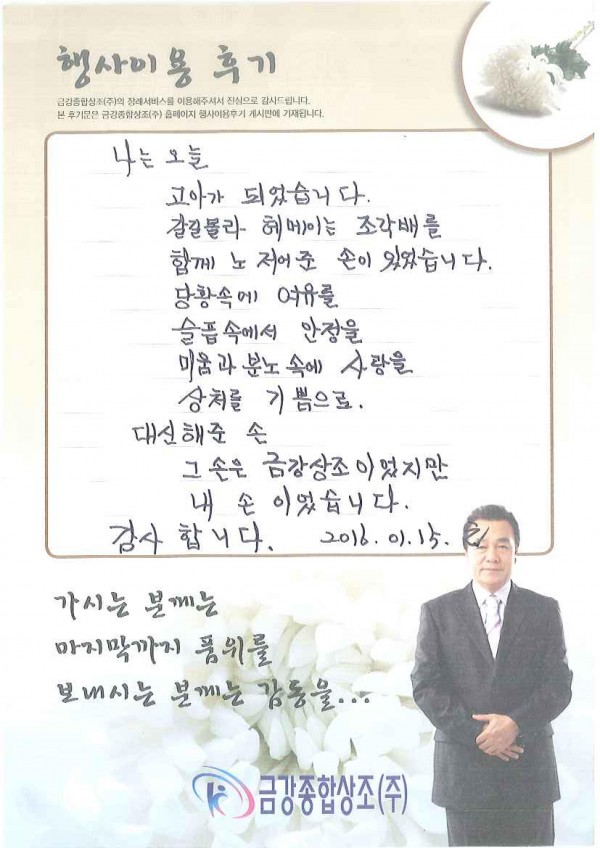 행사이용 후기
금강종합상조(주)의 장례서비스를 이용해주셔서 진심으로 감사드립니다.
본 후기문은 금강종합상조(주) 홈페이지 행사이용후기 게시판에 기재됩니다.
나는 오늘
고아가 되었습니다.
갈길몰라 헤메이는 조각배를
함께 노 저어준 손이 있었습니다.
당황속에 여유를
슬픔속에서 안정을
미움과 분노 속에 사랑을
상처를 기쁨으로.
대신해준 손
그 손은 금강상조이었지만
내 손 이었습니다.
감사 합니다. 2016. 01. 15.
가시는 분께는
마지막까지 품위를
보내시는 분께는 감동을...
금강종합상조(주)